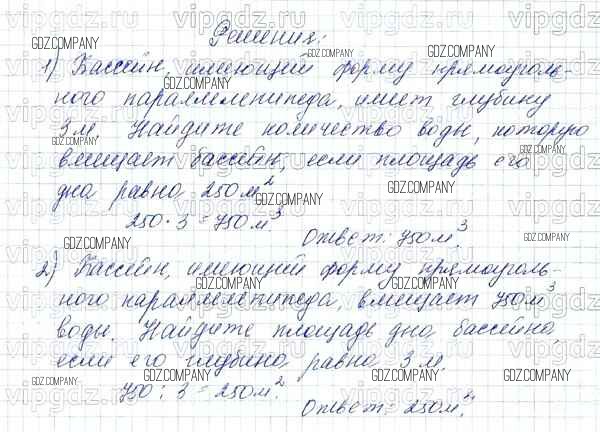 Решения:
1) Бассейн, имеющий форму прямоуголь-
ного параллелепипеда, имеет глубину
3 м. Найдите количество воды, которую
вмещает бассейн, если площадь его
дна равна 250 м²
250 · 3 = 750 м³
Ответ: 750 м³.
2) Бассейн, имеющий форму прямоуголь-
ного параллелепипеда, вмещает 750 м³
воды. Найдите площадь дна бассейна,
если его глубина равна 3 м.
750 : 3 = 250 м².
Ответ = 250 м².
GDZ.COMPANY
vipgdz.ru